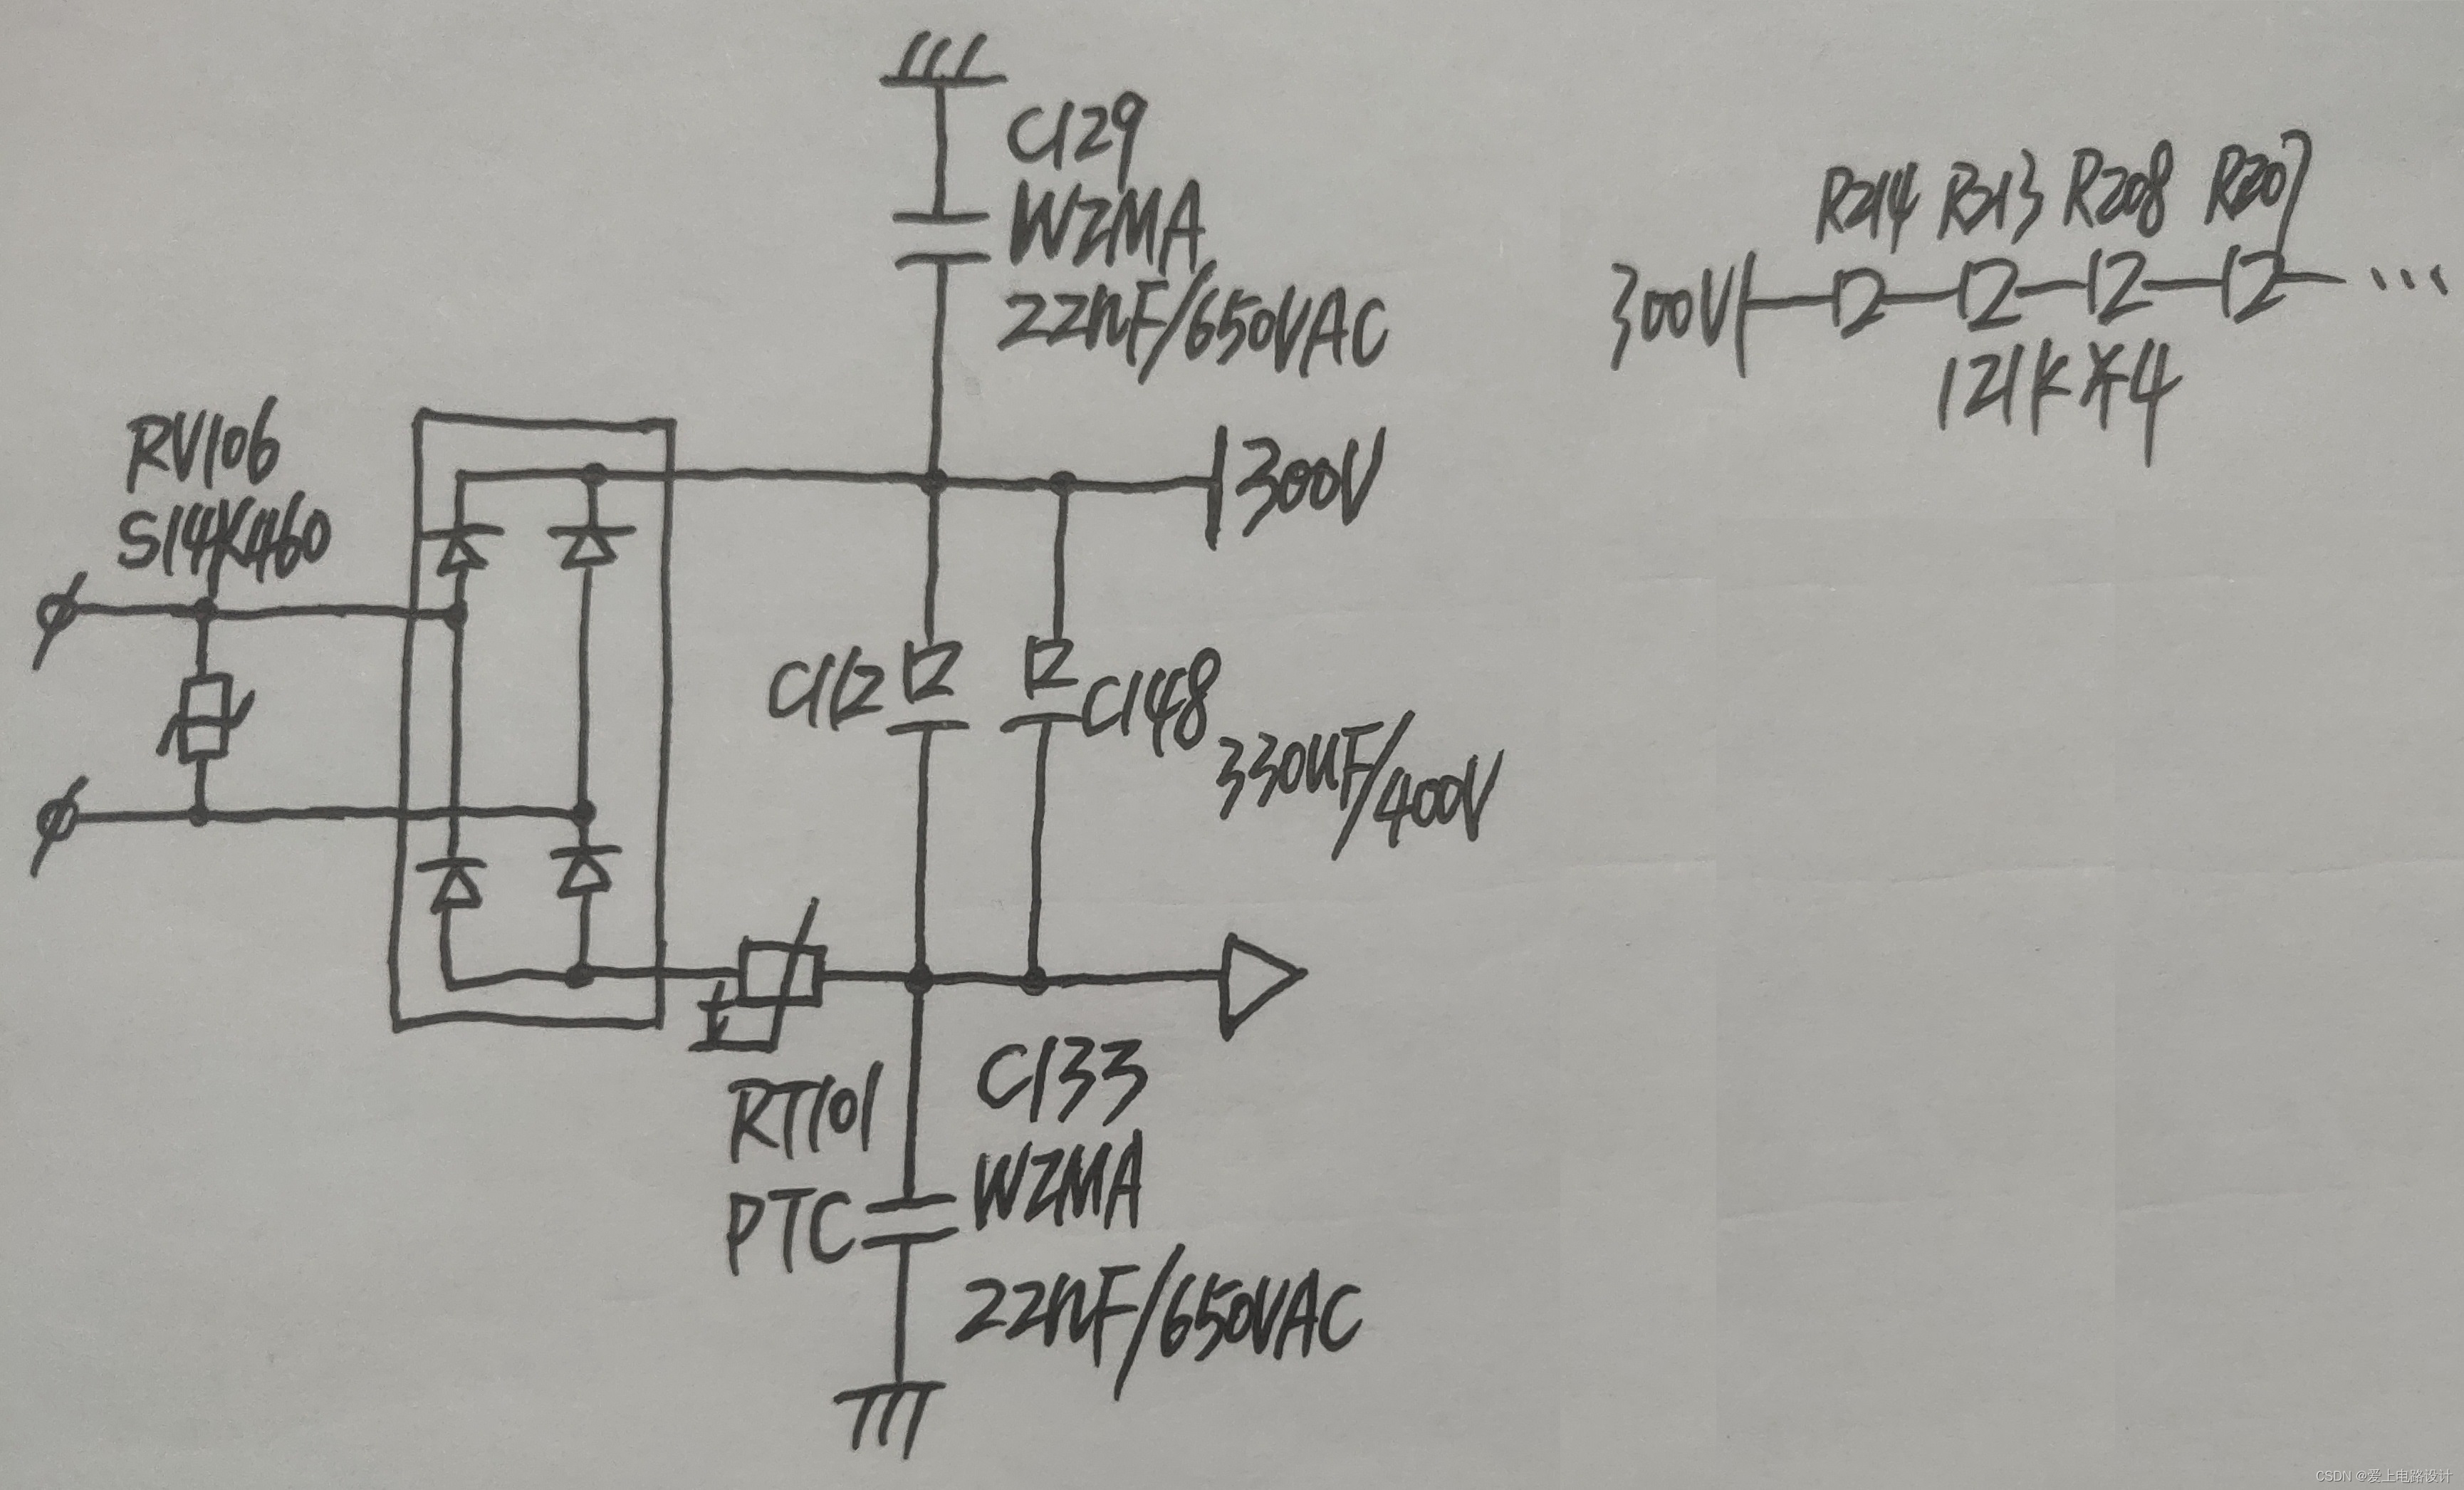 C129
WZMA
22nF/650VAC
R214 R213 R208 R207
300V
121K*4
RV106
S14K460
300V
C112
C148
330uF/400V
t
RT101
PTC
C133
WZMA
22nF/650VAC
CSDN @爱上电路设计